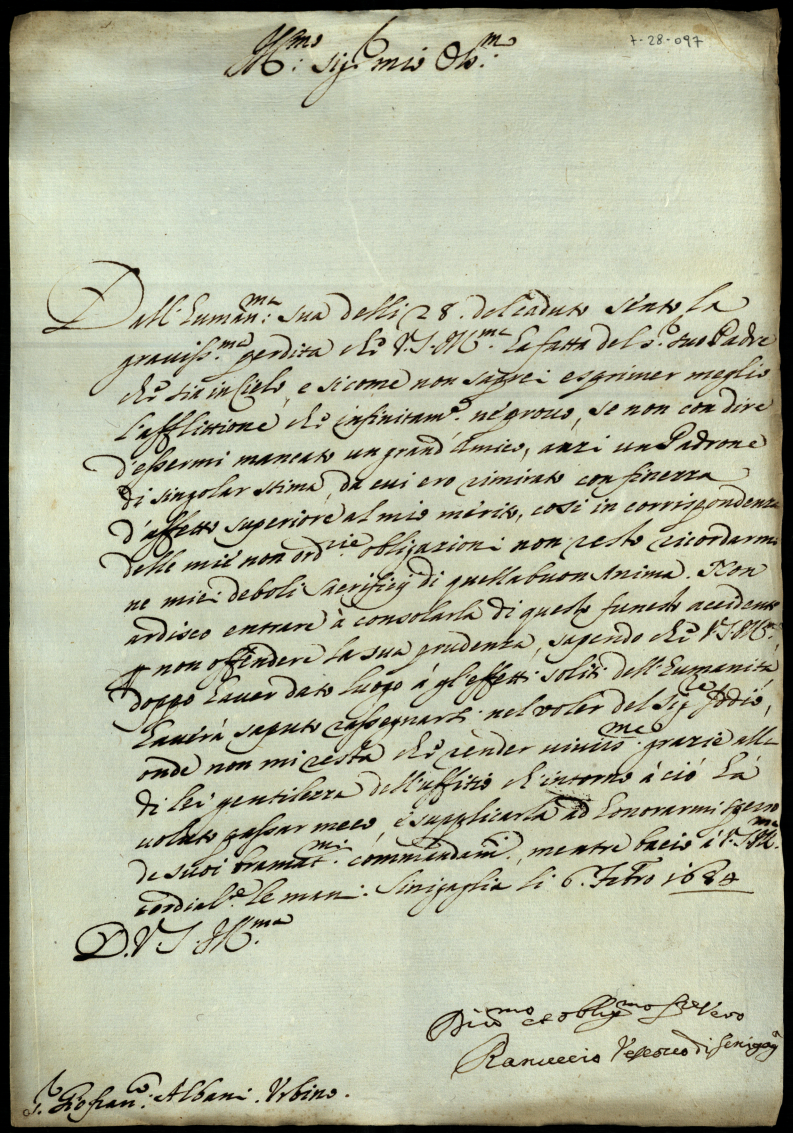 7-28-097
Ill.mo Sig.r mio Oss.mo
Dall'humanma: sua delli 28. del caduto sento la
graviss.ma perdita che V.S.Ill.ma ha fatta del S.r suo Padre
che sia in Cielo, e sicome non saprei esprimer meglio
l'afflittione che infinitam.e ne provo, se non con dire
d'essermi mancato un grand'Amico, anzi un Padrone
di singolar stima, da cui ero rimirato con finezza
d'affetto superiore al mio mérito, cosi in corrispondenza
delle mie non ord.rie obligazioni non resto ricordarmi
ne miei deboli sacrificij di quella buon Anima. Non
ardisco entrare à consolarla di questo funesto accidente
p non offendere la sua prudenza, sapendo che V.S.Ill.ma
doppo haver dato luogo á gl'effetti soliti dell'humanità,
haverà saputo rassegnarsi nel voler del Sig.e Iddio,
onde non mi resta che render viviss.me grazie alla
di lei gentilezza dell'uffitio ch'intorno à ciò hà
voluto passar meco, è supplicarla ad honorarmi spesso
de suoi bramat.mi commandam.i, mentre bacio à V.S.Ill.ma
cordial.e le mani. Sinigaglia li 6. Febro 1684
D.V.S.Ill.ma
Div.mo et obblig.mo Ser.e Vero
Ranuccio Vescovo di Senigag.a
S.r Giofran.co Albani. Urbino.